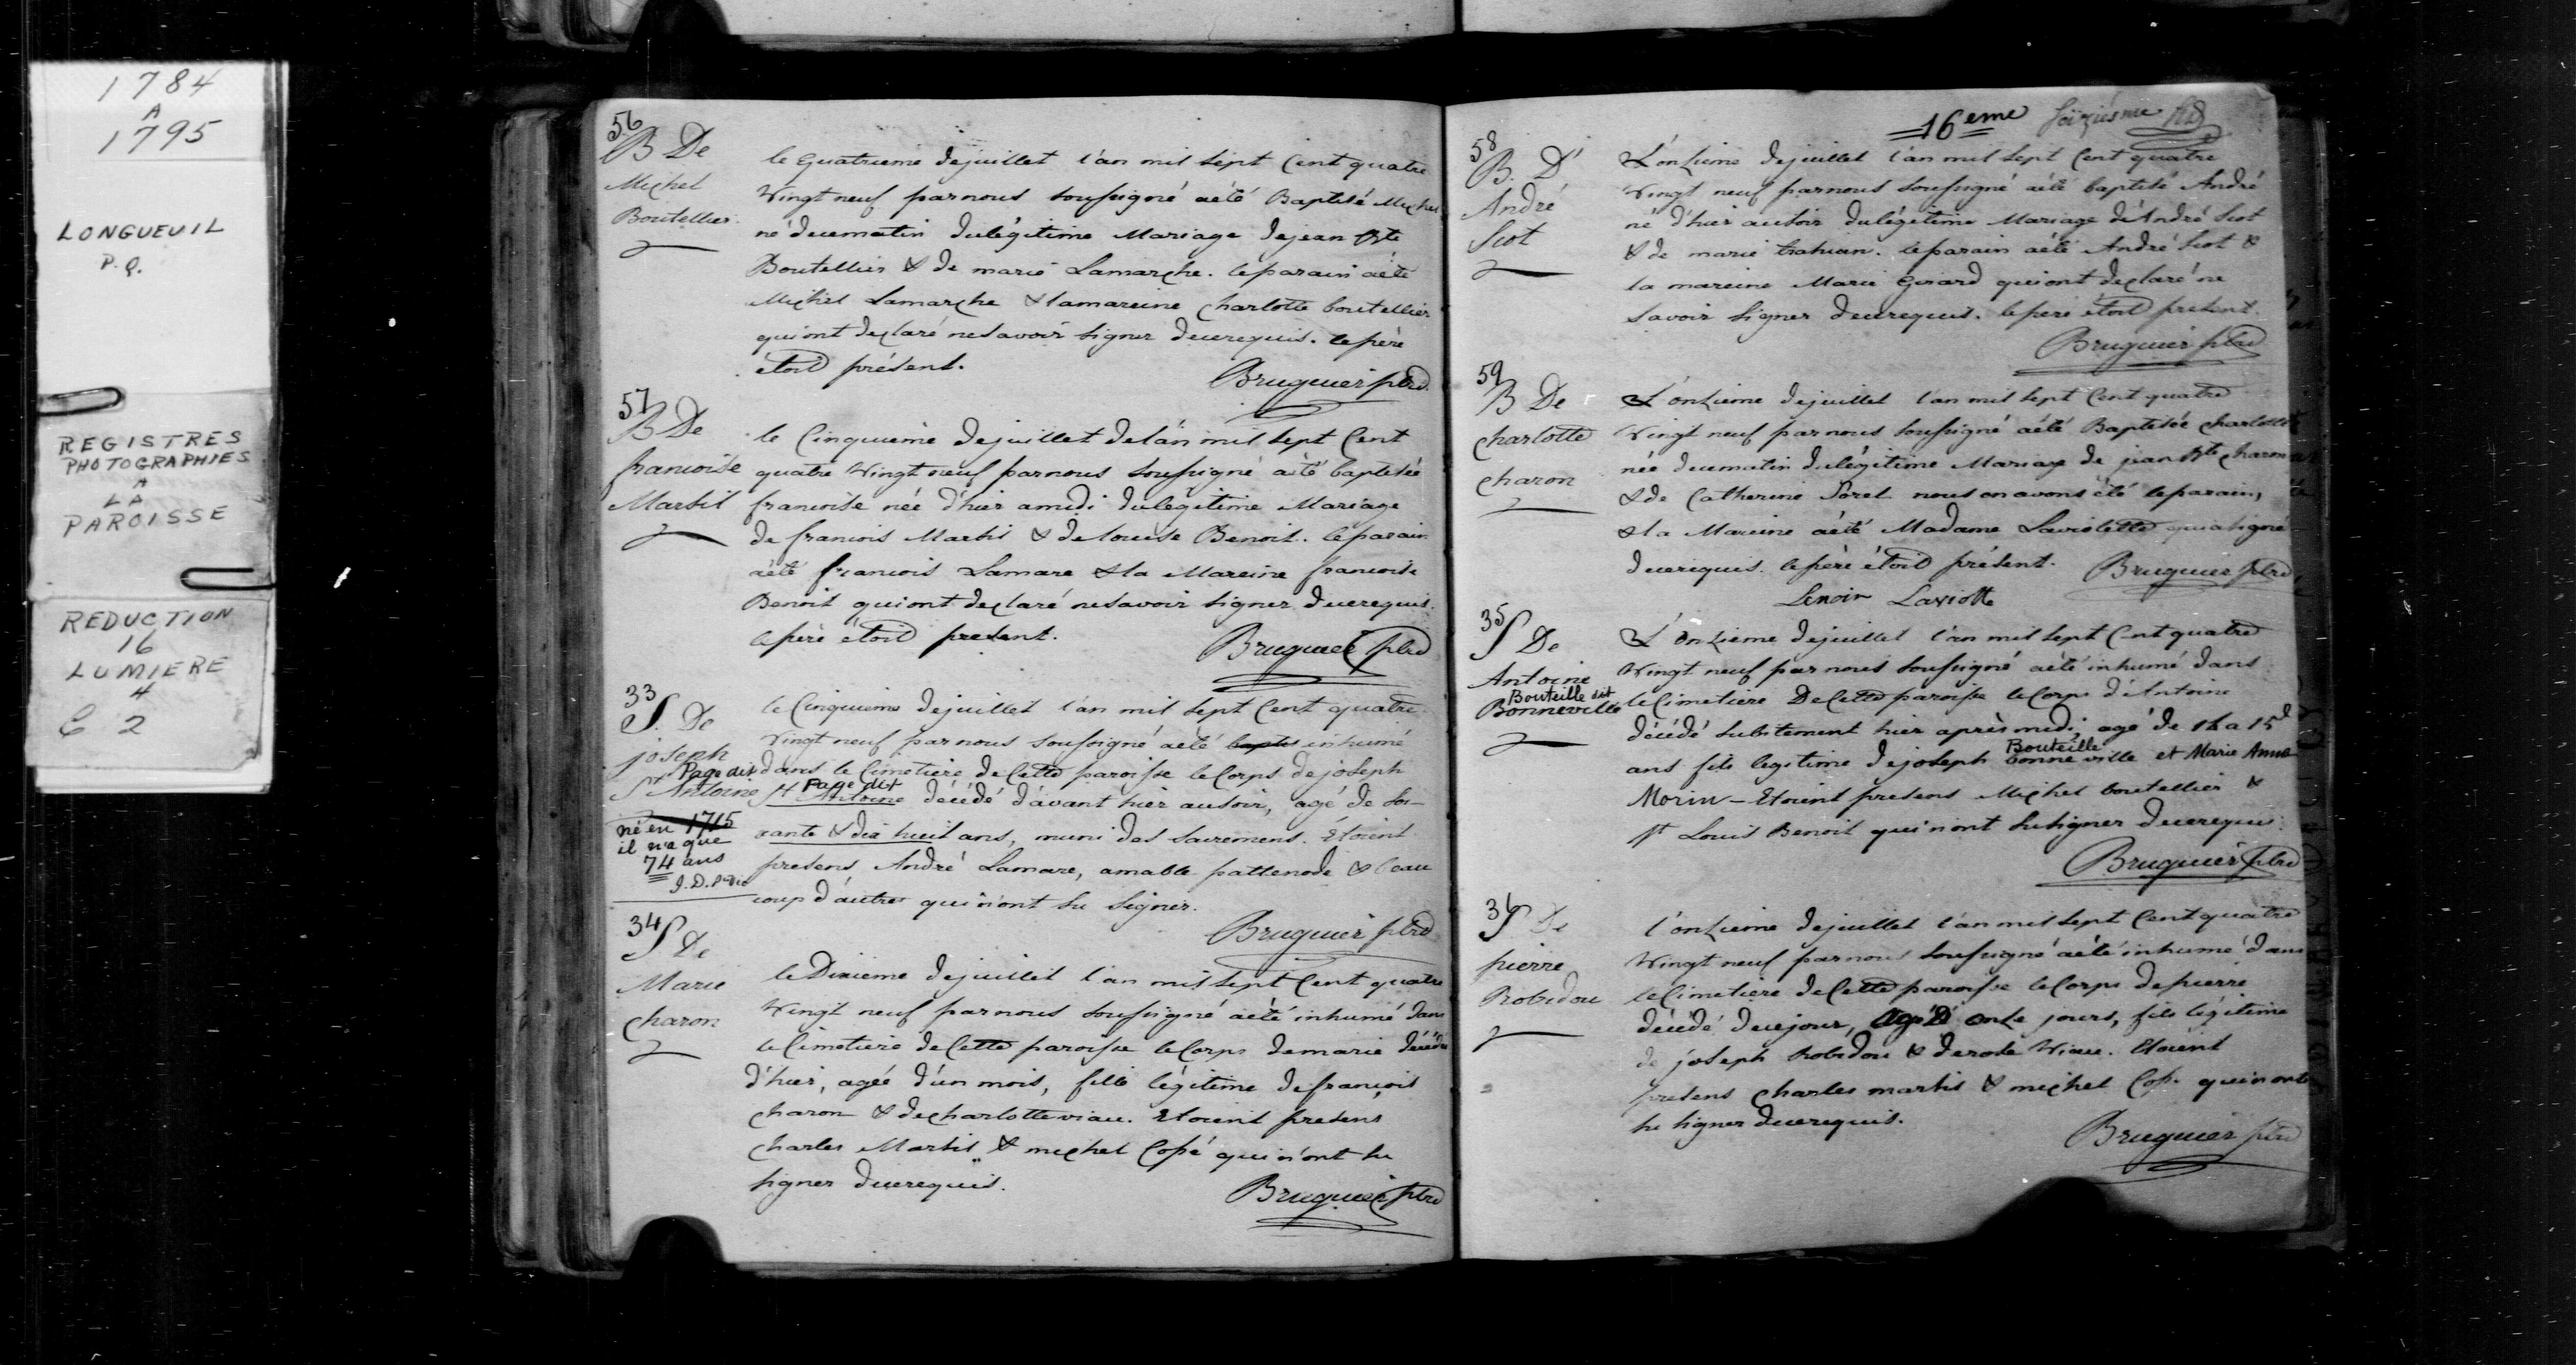 1784
A
1795
LONGUEUIL
P.Q.
REGISTRES
PHOTOGRAPHIES
A
LA
PAROISSE
REDUCTION
16
LUMIERE
4
C 2
56
B De
Michel
Boutellier
le quatrieme dejuillet l'an mil sept Cent quatre
Vingt neuf parnous soussigné aété Baptisé Michel
né decematin dulégitime Mariage dejean Bte
Boutellier & de marie Lamarche. leparain aété
Michel Lamarche & lamareine charlotte boutellier
quiont declaré nesavoir signer decerequis. lepère
étoit présent.
Bruguier ptre
57
B De
francoise
Marsil
le Cinquieme dejuillet delan mil sept Cent
quatre Vingt neuf parnous soussigné aété baptisée
francoise née d'hier amidi dulégitime Mariage
de francois Marsil & delouise Benoit. leparain
aété francois Lamare & la Mareine francoise
Benoit quiont declaré nesavoir signer decerequis.
lepère étoit present.
Bruguier ptre
33
S. De
joseph
Page dit
St Antoine
né en 1715
il n'a que
74 ans
leCinquieme dejuillet l'an mil sept Cent quatre
Vingt neuf parnous soussigné aété baptis inhumé
dans le Cimetiere deCette paroisse leCorps dejoseph
Page dit
St Antoine décédé d'avant hier ausoir, agé de soi-
xante & dix huit ans, muni des sacremens. Etoient
presens André Lamare, amable pattenode & beau
coup d'autres quin'ont su signer.
Bruguier ptre
34
S De
Marie
charon
le Dixieme dejuillet l'an mil sept Cent quatre
Vingt neuf parnous soussigné aété inhumé dans
leCimetiere deCette paroisse leCorps demarie décédée
d'hier, agée d'un mois, fille légitime defrançois
charon & decharlotte viau. Etoient presens
charles Marsil & michel Copé quin'ont su
signer decerequis.
Bruguier ptre
16eme Seiziesme
58
B. D'
André
Scot
L'onzieme dejuillet l'an mil sept Cent quatre
Vingt neuf parnous soussigné aété baptisé André
né d'hier ausoir dulégitime Mariage d'André Scot
& de marie trahan. leparain aété André Scot &
la mareine Marie Girard quiont declaré ne
savoir signer decerequis. lepere étoit present.
Bruguier ptre
59
B De
charlotte
charon
L'onzieme dejuillet l'an mil sept Cent quatre
Vingt neuf parnous soussigné aété Baptisée charlotte
née decematin dulégitime Mariage de jean Bte charon
& de Catherine Poret nous enavons été leparain,
& la Mareine aété Madame Laviolette quiasigné
decerequis. lepère étoit présent.
Bruguier ptre
Lenoir Laviotte
35
S De
Antoine
Bouteille dit
Bonneville
L'onzieme dejuillet l'an mil sept Cent quatre
Vingt neuf parnous soussigné aété inhumé dans
leCimetiere DeCette paroisse leCorps d'Antoine
décédé subitement hier après midi, agé de 14 a 15
ans fils legitime dejoseph Bouteille bonneville et Marie Anne
Morin - Etoient presens Michel boutellier &
st Louis Benoit quin'ont susigner decerequis.
Bruguier ptre
36
S De
pierre
Robidou
l'onzieme dejuillet l'an mil sept Cent quatre
Vingt neuf parnous soussigné aété inhumé dans
leCimetiere deCette paroisse leCorps depierre
décédé decejour, agé D'onze jours, fils légitime
de joseph Robidou & derose Viau. Etoient
presens charles marsil & michel Copé quin'ont
su signer decerequis.
Bruguier ptre